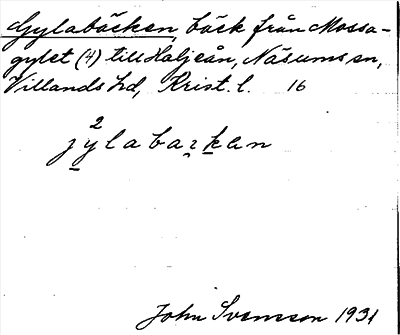 Gylabäcken, bäck från Mossa-
gylet (4) till Holjeån, Näsums sn,
Villands hd, Krist. l. 16
2
jylabaʐkɛn
John Svensson 1931